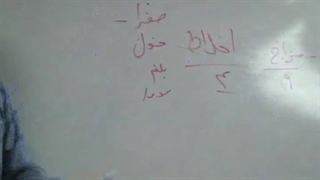 مزاج
۹
اخلاط
۴
صفرا -
خون
بلغم
سودا